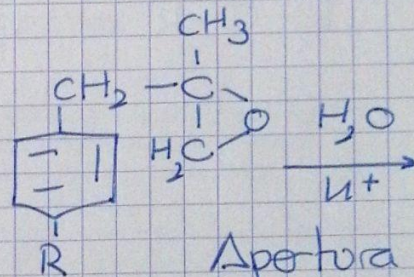 CH3
CH2 - C
O
H2C
H2O
H+
R
Apertura